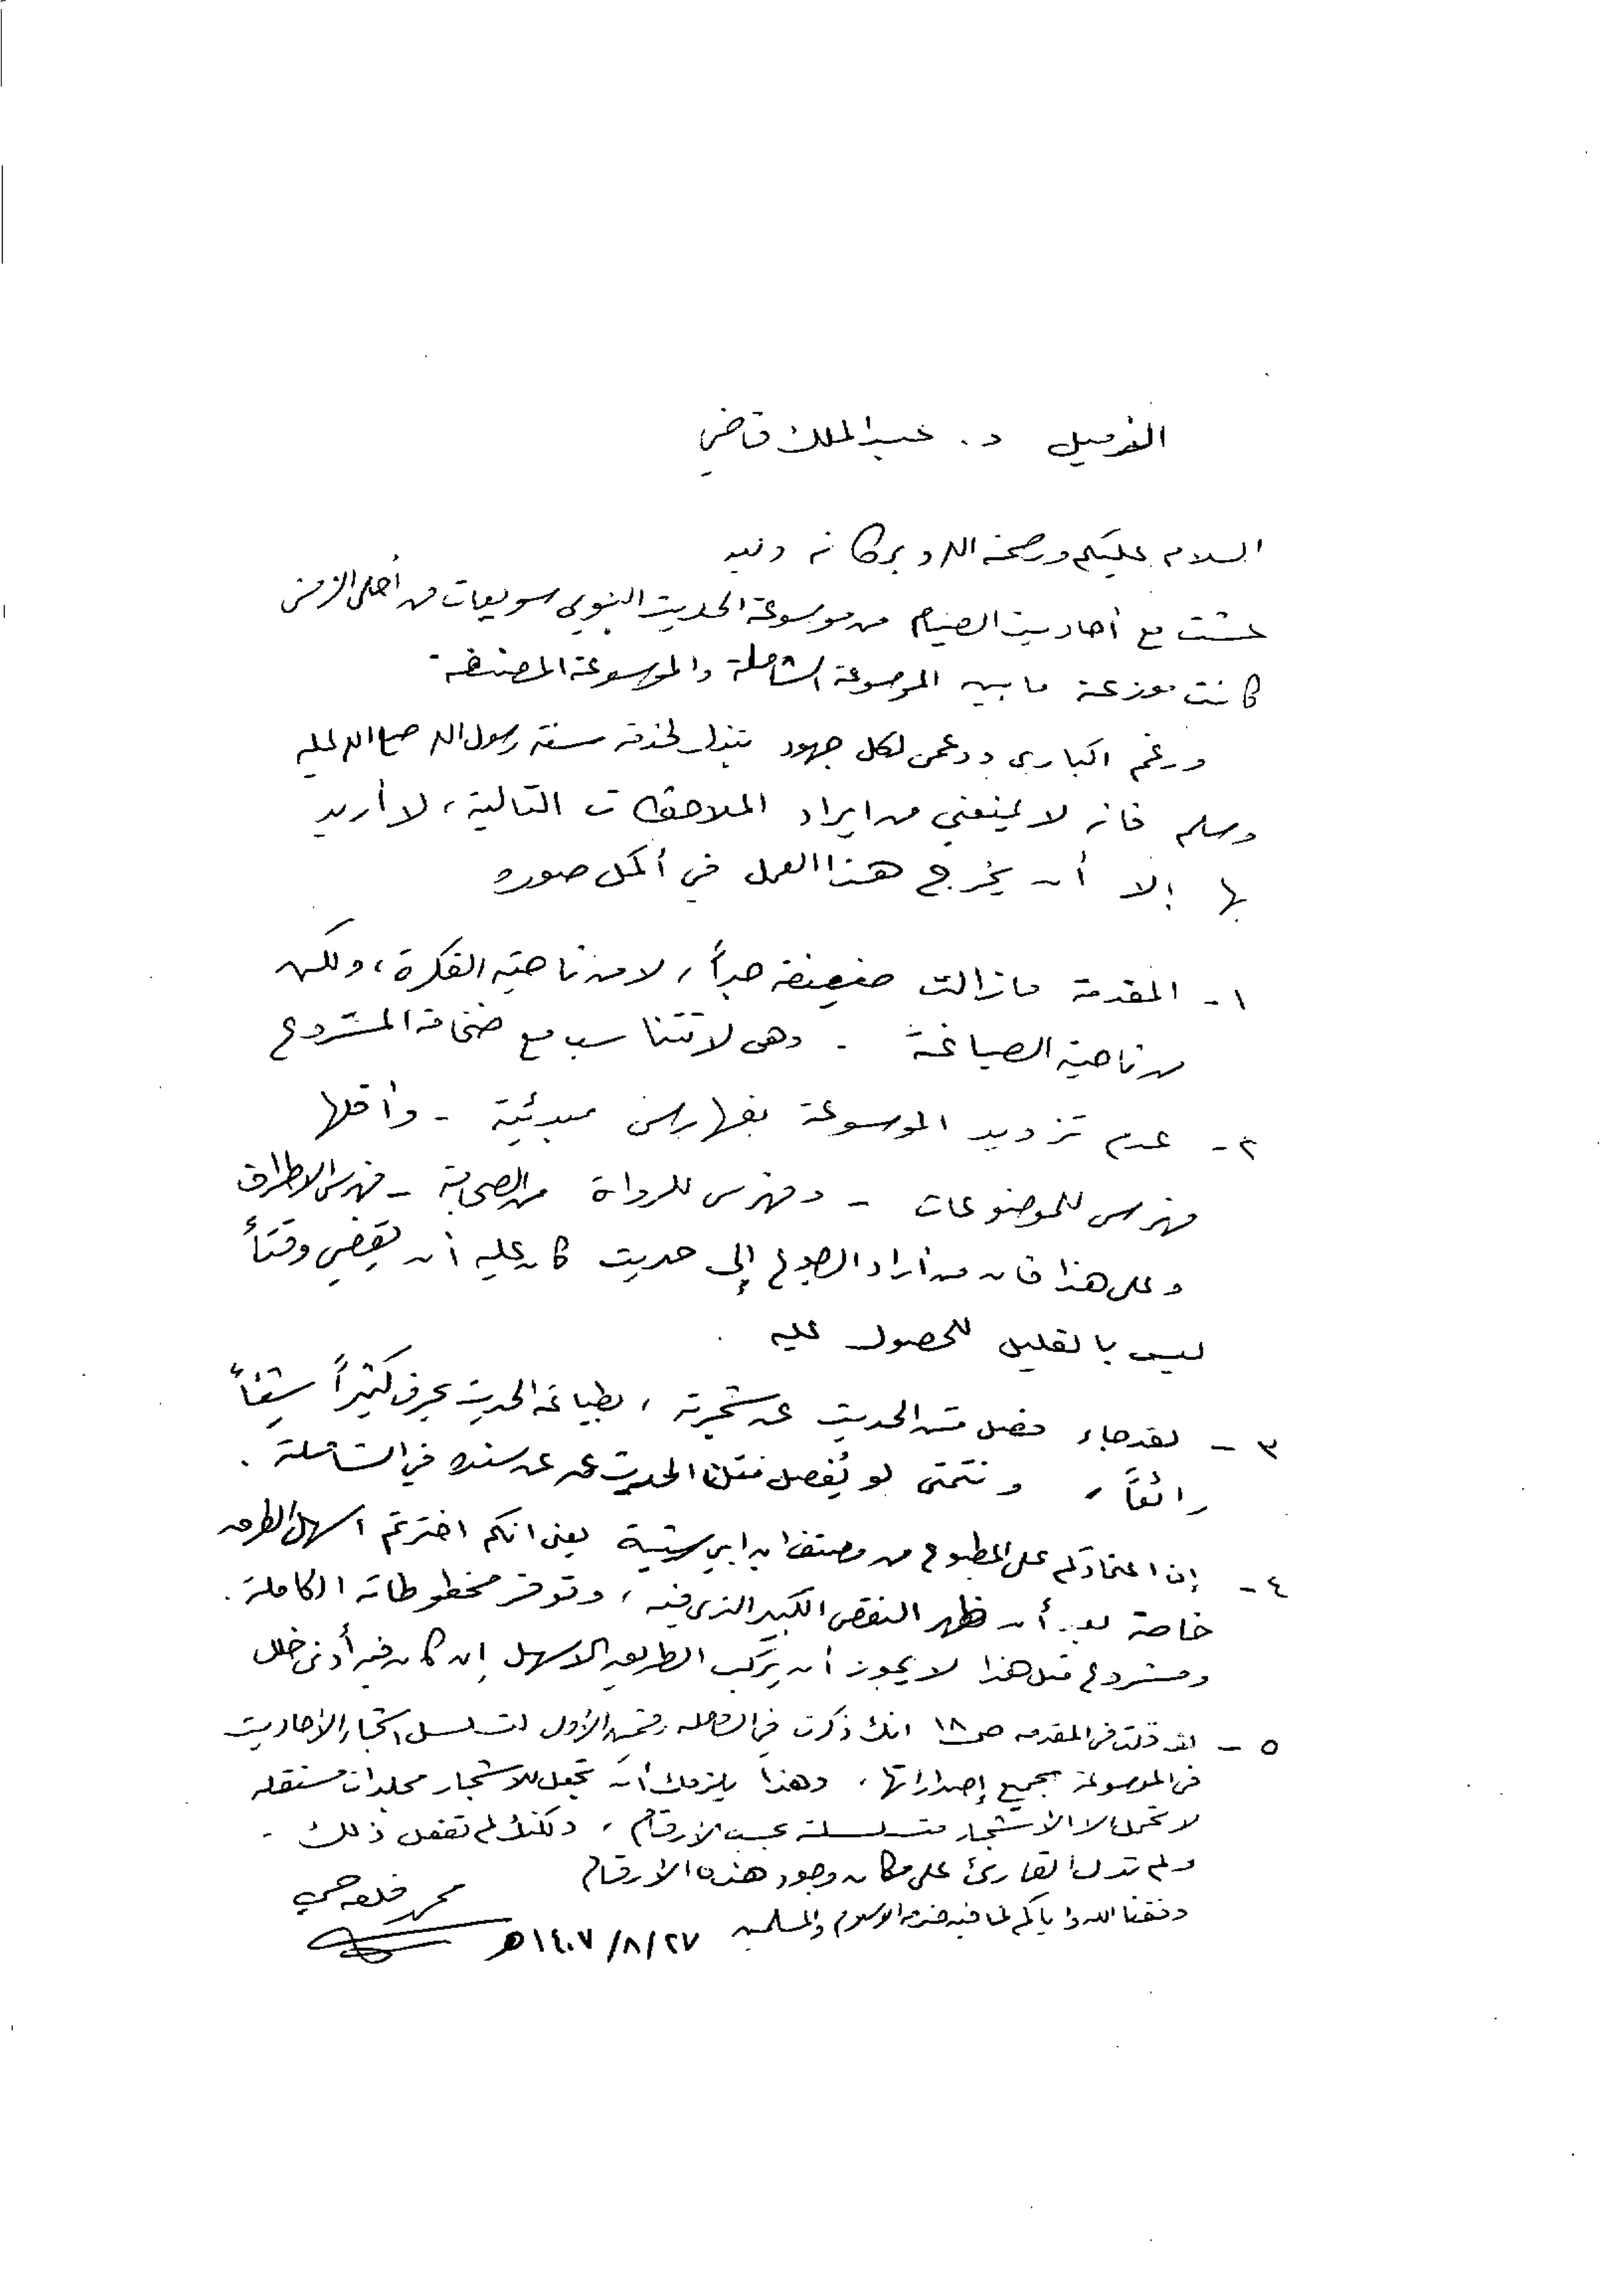 الزميل د. عبد الملك قاضي
السلام عليكم ورحمة الله وبركاته وبعد
عشت مع أحاديث الصيام من موسوعة الحديث النبوي سويعات من أحلى الزمن
كانت موزعة ما بين الموسوعة الشاملة والموسوعة المصنفة.
ورغم اكباري ودعمي لكل جهود تبذل لخدمة سنة رسول الله صلى الله عليه
وسلم فانه لا يمنعني من ايراد الملاحظات التالية، لا أريد
بها إلا أن يخرج هذا العمل في أكمل صورة
١- المقدمة ما زالت ضعيفة جداً، لا من ناحية الفكرة، ولكن
من ناحية الصياغة. وهي لا تتناسب مع ضخامة المشروع
٢- عدم تزويد الموسوعة بفهارس مبدئية - وأقلها
فهرس للموضوعات - وفهرس للرواة من الصحابة - فهرس الاطراف
وعلى هذا فان من أراد الرجوع إلى حديث كان عليه أن يقضي وقتاً
ليس بالقليل للحصول عليه.
٣- لقد جاء فصل متن الحديث عن شجرته، بطباعة الحديث بحرف كبير شيئاً
رائعاً، ونتمنى لو يُفصل متن الحديث عن سنده في الشاملة.
٤- إن اعتمادكم على المطبوع من مصنف ابن ابي شيبة يعني انكم اخترتم اسهل الطرق
خاصة بعد أن ظهر النقص الكبير الذي فيه، وتوفر مخطوطاته الكاملة.
ومشروع مثل هذا لا يجوز أن يركب الطريق الاسهل إن كان فيه أدنى خلل
٥- لقد قلت في المقدمة ص ١٨ انك ذكرت في الشاملة رقمه الأول لتسلسل اشجار الأحاديث
في الموسوعة بجميع إصداراتها، وهذا يلزمك أن تجعل للاشجار مجلدات مستقلة
لا تحمل الا الأشجار متسلسلة بحسب الارقام، ولكنك لم تفعل ذلك.
ولم تدل القارئ على مكان وجود هذه الارقام
وفقنا الله واياكم لما فيه خدمة الاسلام والمسلمين
محمد قلعه جي
٢٧/٨/١٤٠٧ه